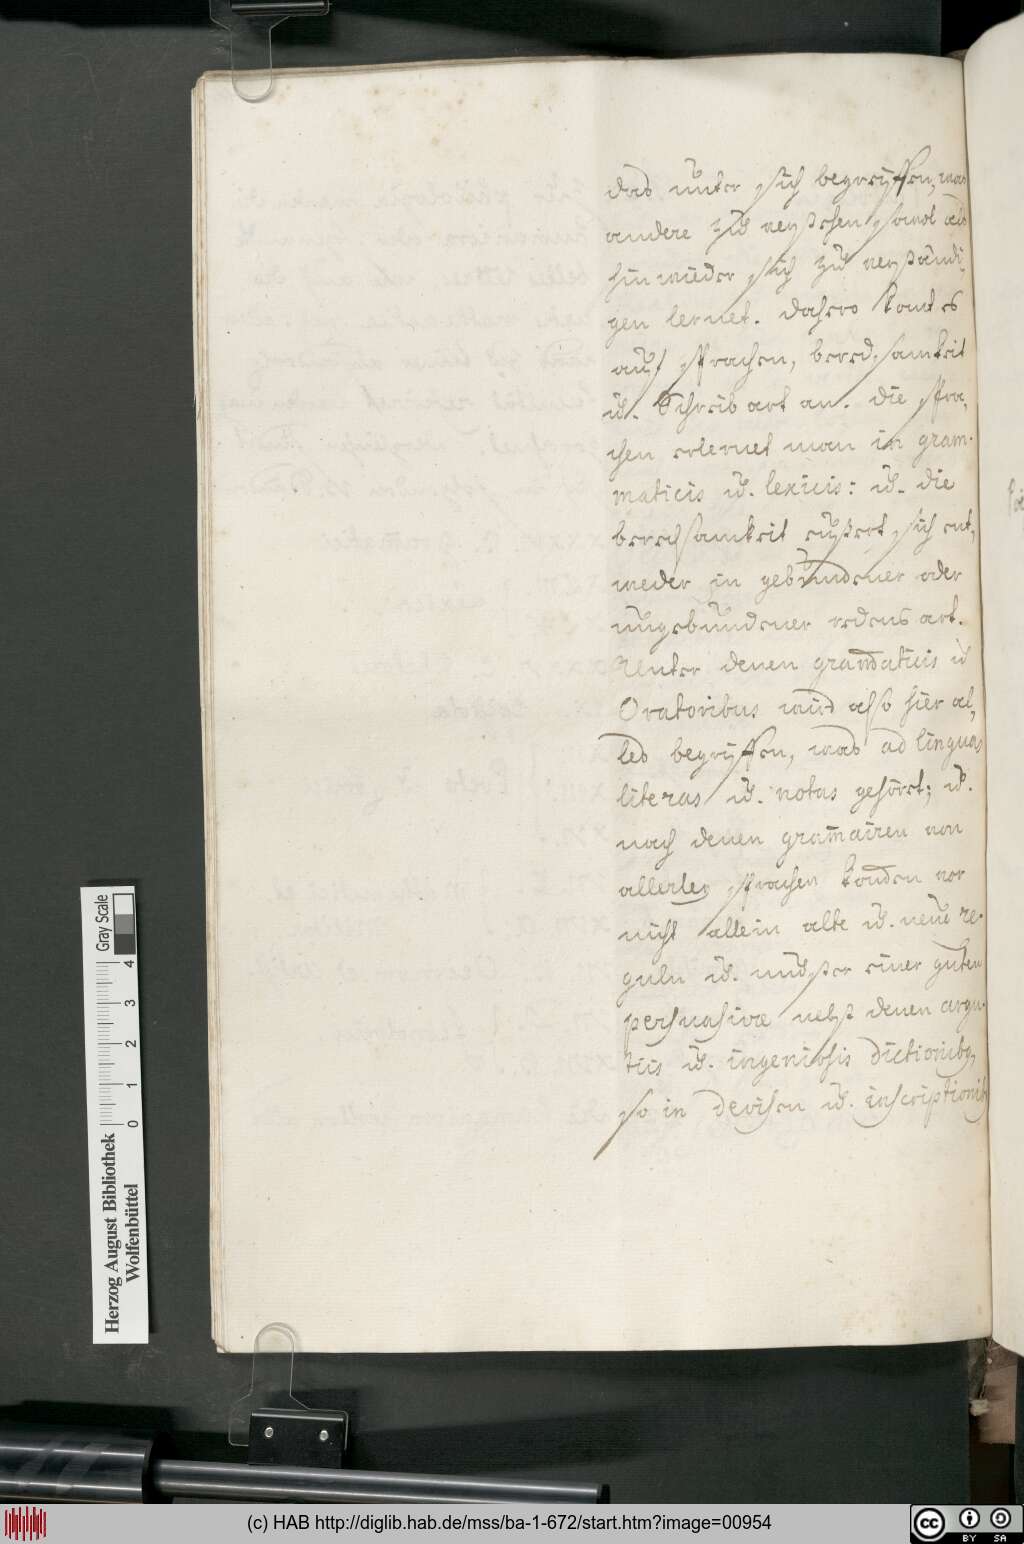 das unter sich begreiffen, was
andere zu verstehen sowol als
hinwieder sich zu verständi,
gen lernet. dahero komt es
auf sprachen, bered,samkeit
u. Schreib art an. die spra,
chen erlernet man in gram-
maticis u. lexicis: u. die
beredsamkeit eußert sich ent,
weder in gebundener oder
ungebundener redens art.
Unter denen grammaticis u
Oratoribus wird also hier al,
les begriffen, was ad linguas
literas u. notas gehöret; u.
nach denen gram̄airen von
allerley sprachen
nicht allein alte u. neue re-
guln u. muster einer guten
persuasivæ nebst denen argu-
tiis u. ingeniosis dictionibq,
so in devisen u. inscriptionib
Gray Scale
0 1 2 3 4
Herzog August Bibliothek
Wolfenbüttel
(c) HAB http://diglib.hab.de/mss/ba-1-672/start.htm?image=00954
cc BY SA